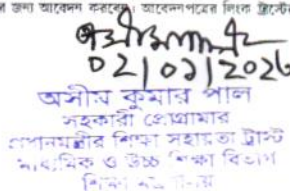 জন্য আবেদন করবেন। আবেদনপত্রের লিংক ট্রাস্টের
02/02/2026
অসীম কুমার পাল
সহকারী প্রোগ্রামার
প্রধানমন্ত্রীর শিক্ষা সহায়তা ট্রাস্ট
মাধ্যমিক ও উচ্চ শিক্ষা বিভাগ
শিক্ষা মন্ত্রণালয়